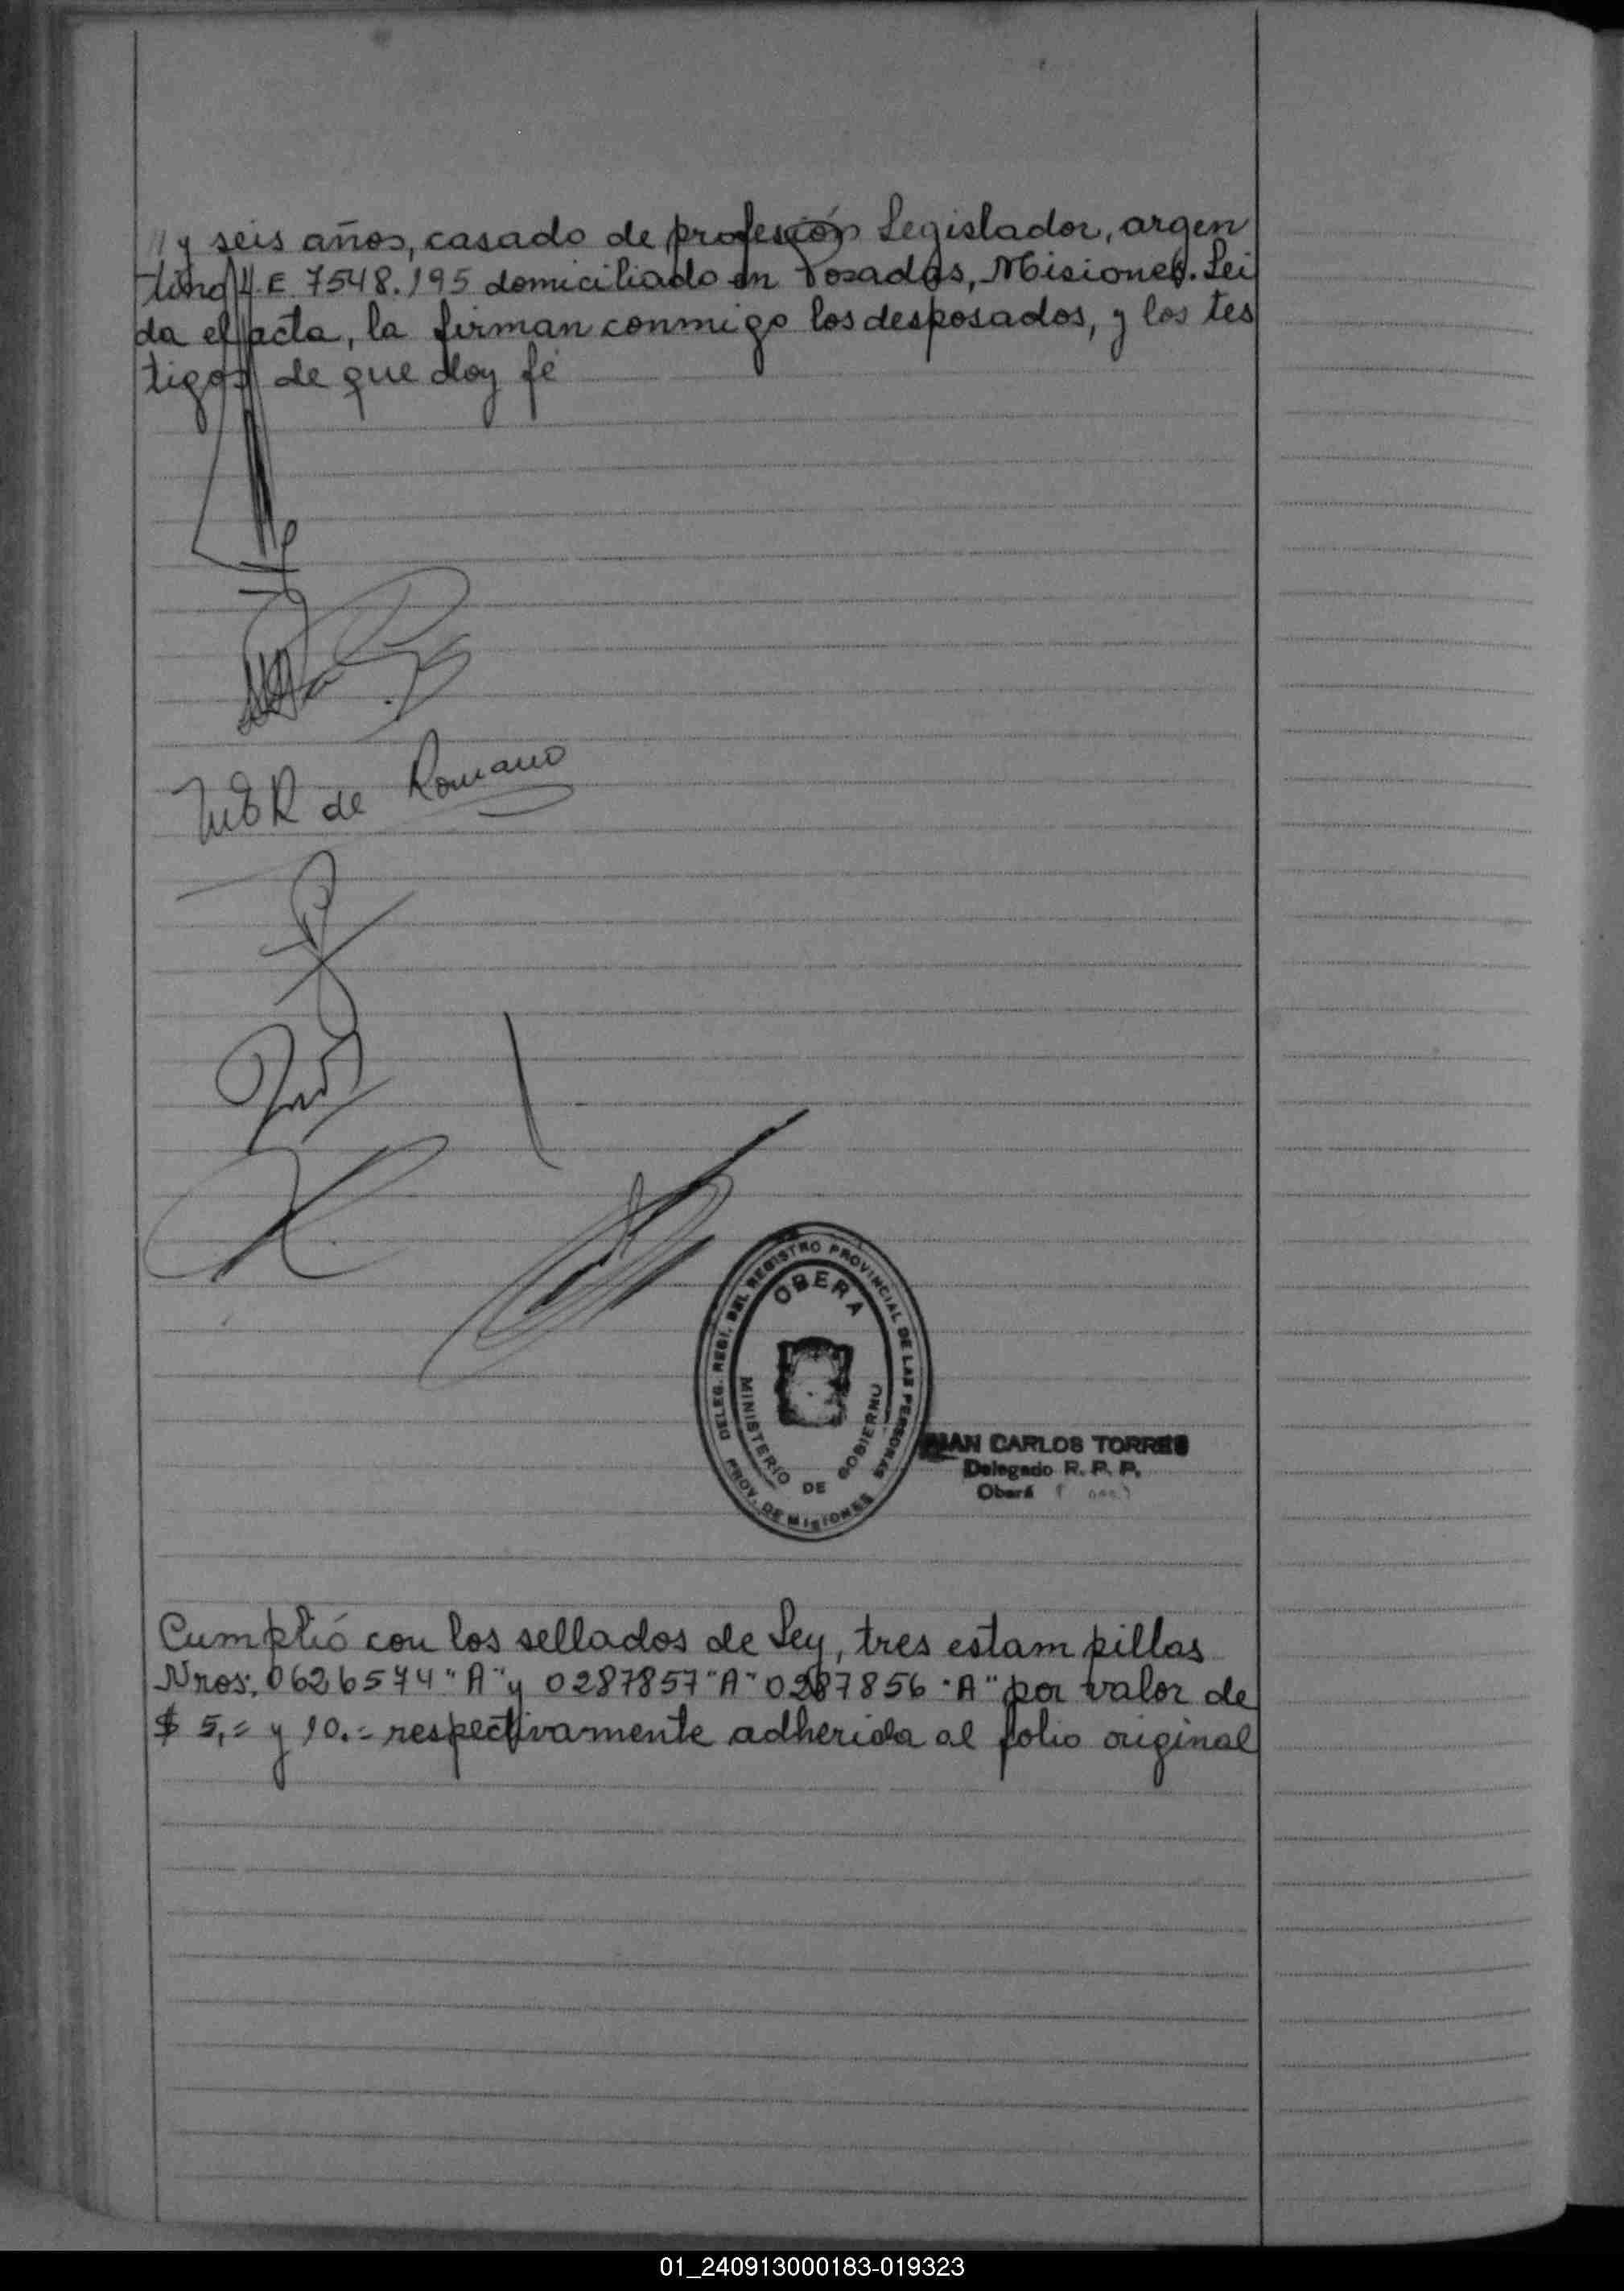 // y seis años, casado de profesión Legislador, argen
tino L.E. 7548.195 domiciliado en Posadas, Misiones. Lei
da el acta, la firman conmigo los desposados, y los tes
tigos de que doy fé
de Romano
DELEG. REGI. DEL REGISTRO PROVINCIAL DE LAS PERSONAS
OBERA
MINISTERIO DE GOBIERNO
PROV. DE MISIONES
JUAN CARLOS TORRES
Delegado R. P. P.
Oberá
Cumplió con los sellados de Ley, tres estampillas
Nros: 0626574 "A" y 0287857 "A" 0287856 "A" por valor de
$ 5,= y 10.= respectivamente adherida al folio original
01_240913000183-019323